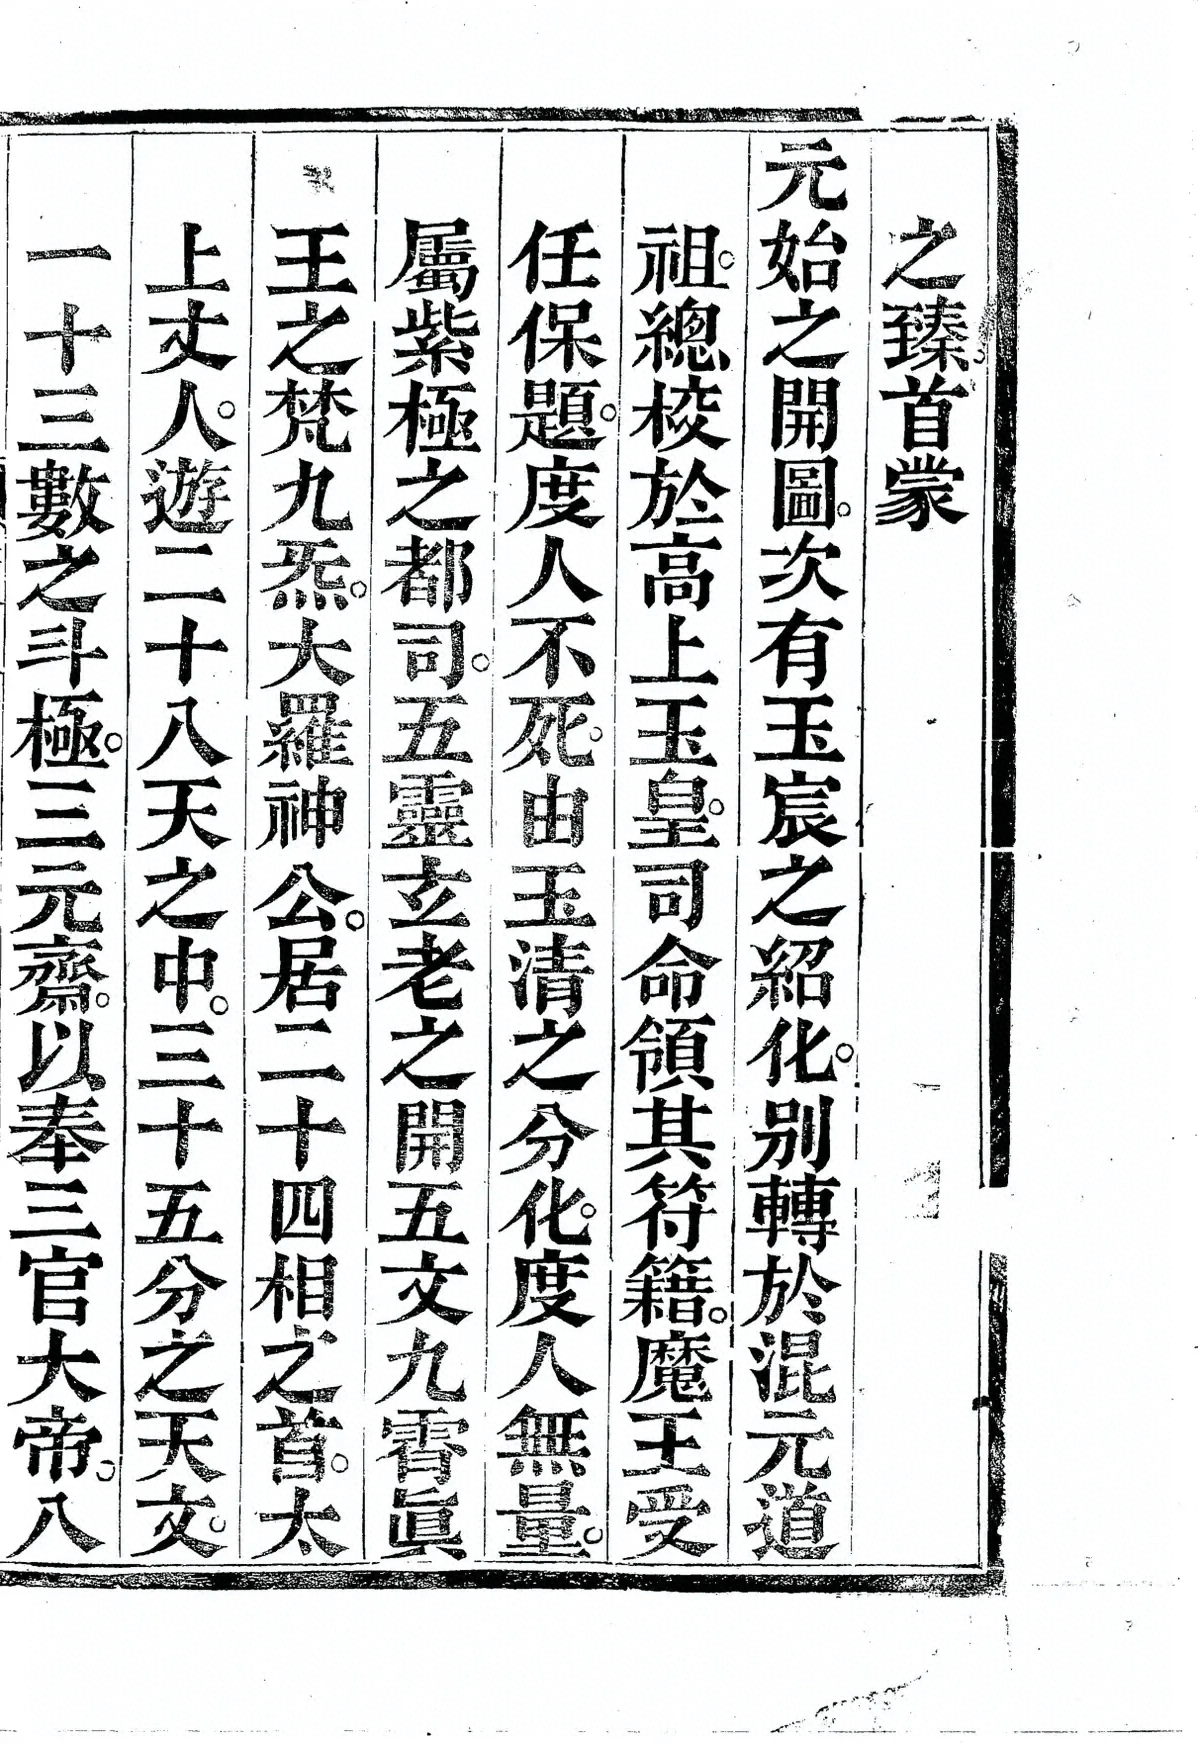 之臻。首蒙
元始之開圖。次有玉宸之紹化。别轉於混元道
祖。總校於高上玉皇。司命領其符籍。魔王受
任保題。度人不死。由玉清之分化。度人無量。
屬紫極之都司。五靈玄老之開五文九霄眞
王之梵九炁。大羅神公。居二十四相之首。太
上丈人。遊二十八天之中。三十五分之天文。
一十三數之斗極。三元齋。以奉三官大帝。八